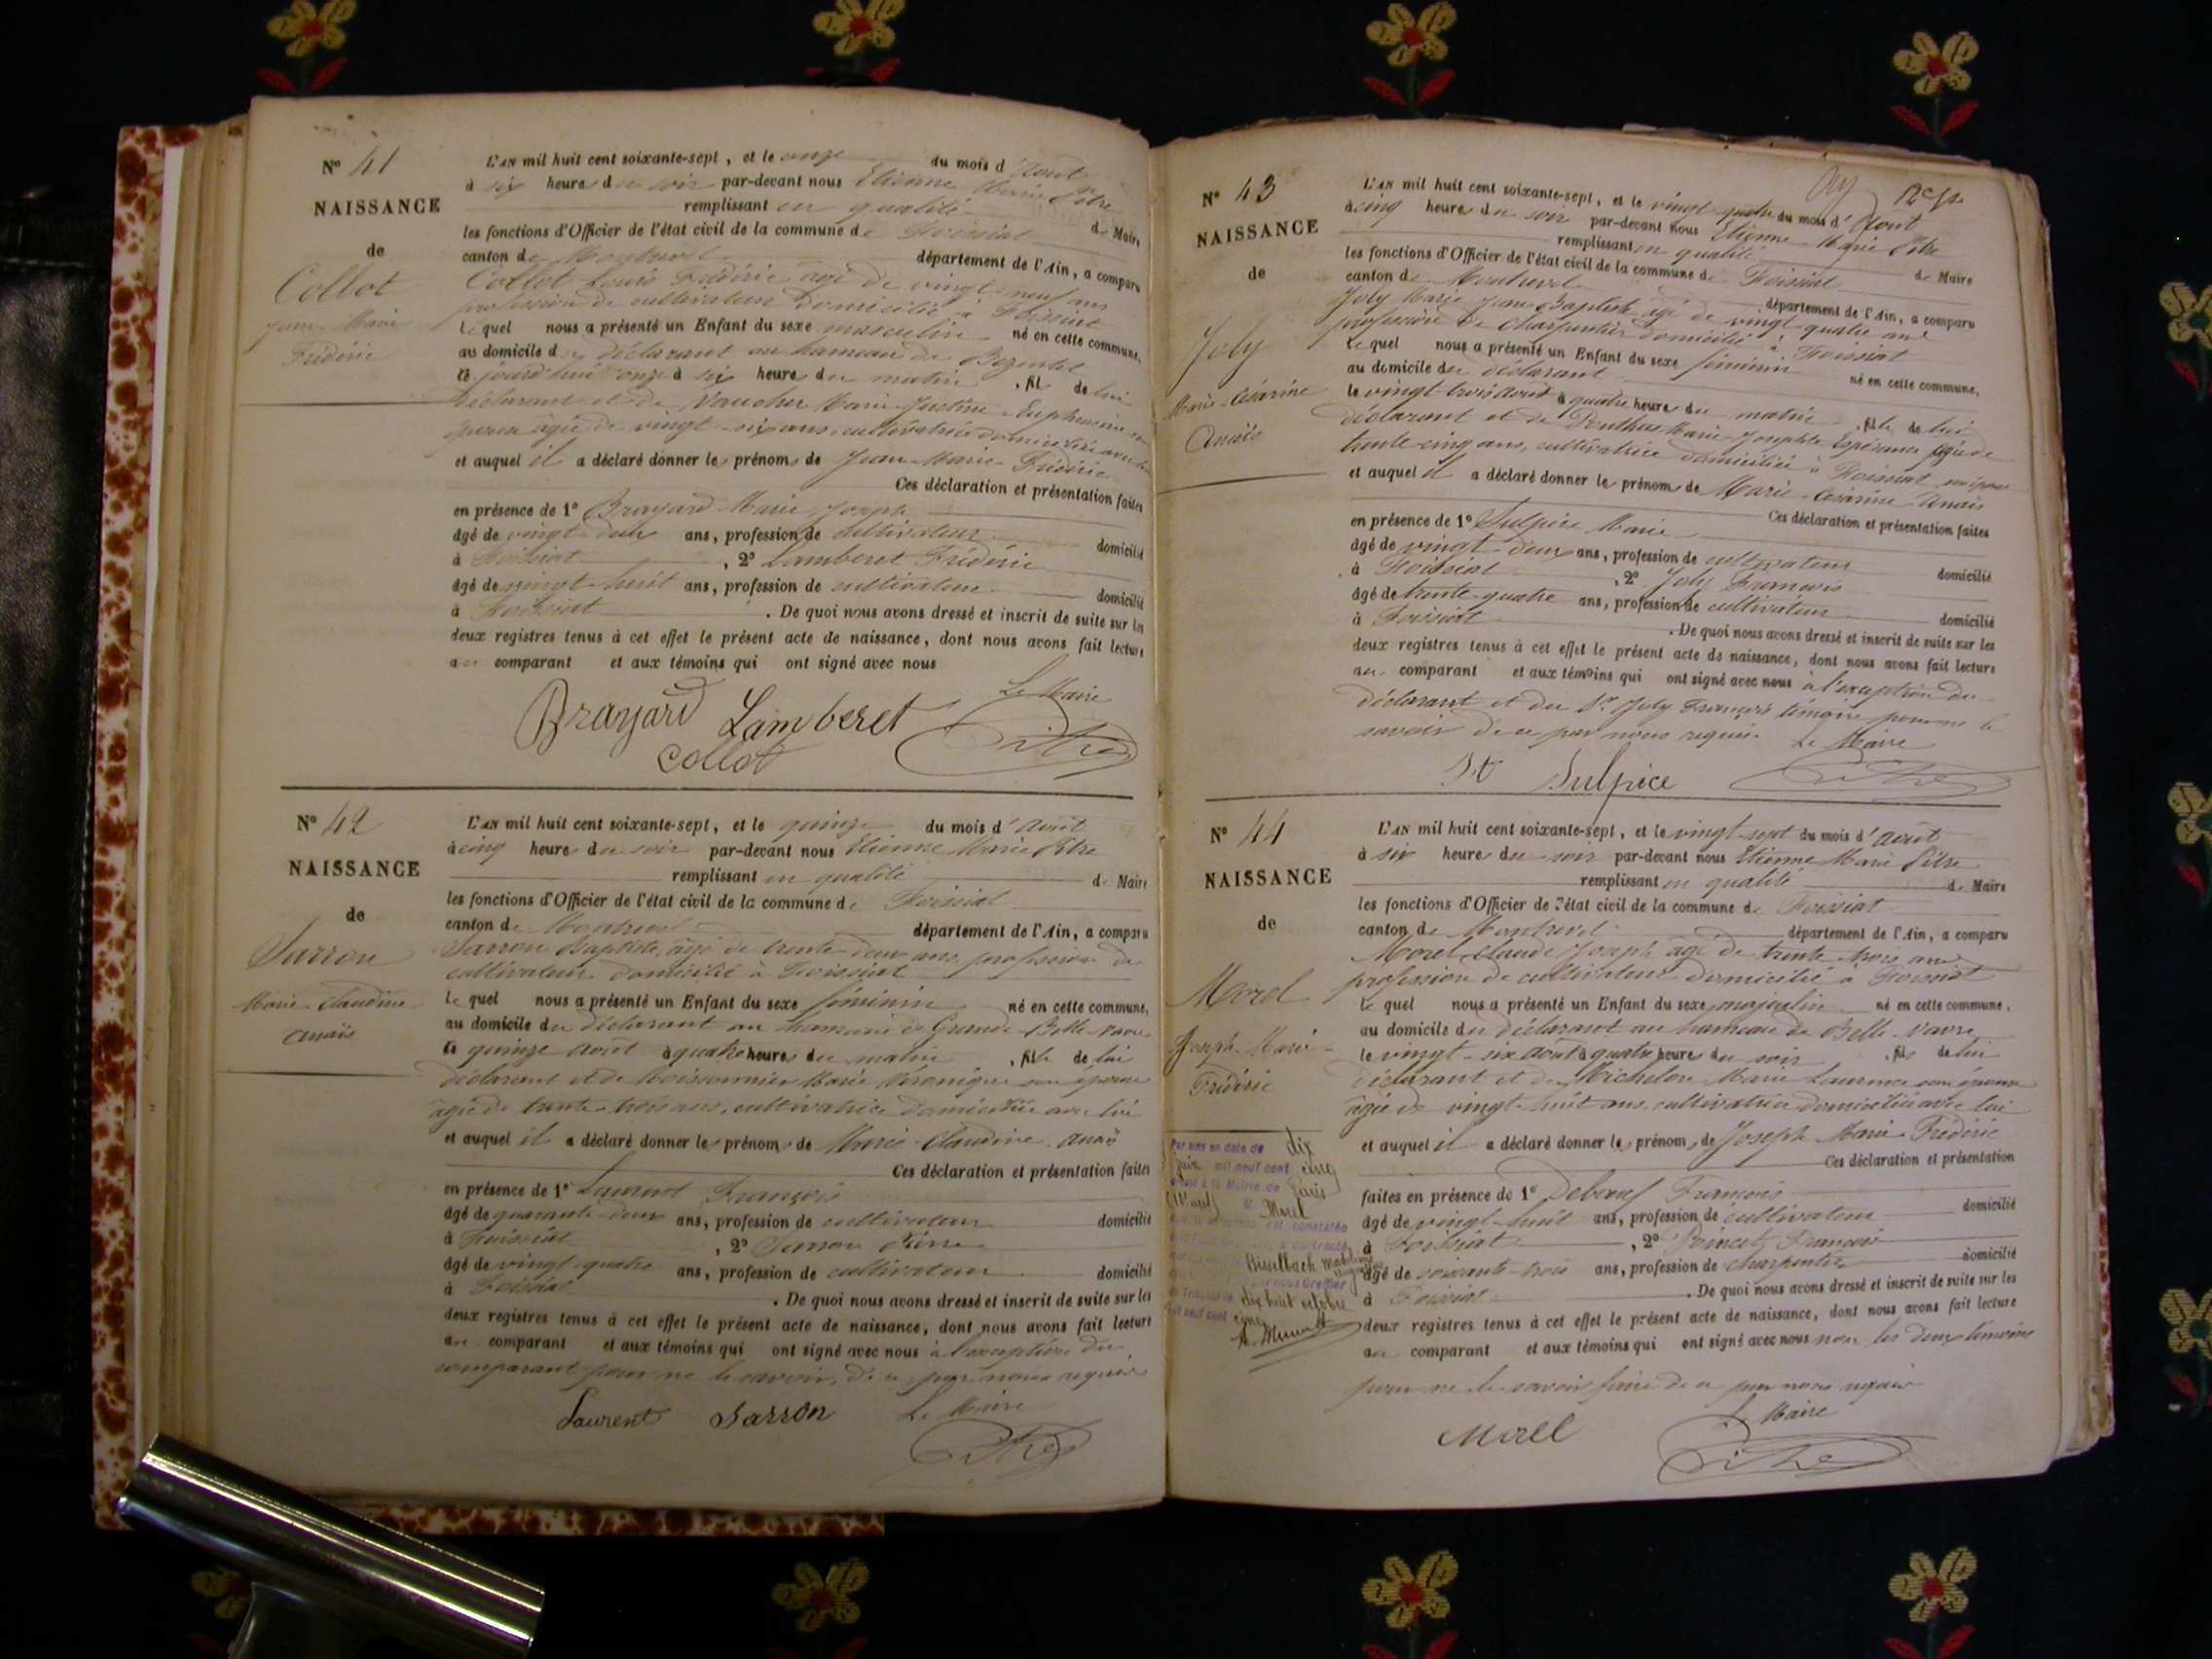 N° 41
NAISSANCE
de
Collot
Jean-Marie
Frédéric
L'AN mil huit cent soixante-sept, et le onze du mois d'Aout
à six heures du soir par-devant nous Etienne Marie Pitre
remplissant en qualité de Maire
les fonctions d'Officier de l'état civil de la commune de Foissiat
canton de Montrevel département de l'Ain, a comparu
Collot Louis Frédéric agé de vingt-neuf ans
profession de cultivateur domicilié à Foissiat
lequel nous a présenté un Enfant du sexe masculin né en cette commune,
au domicile du déclarant au hameau de
ce jourd'hui onze à six heures du matin, fils de lui
déclarant et de Vaucher Marie Justine Euphrasie son
épouse agée de vingt-six ans, cultivatrice domiciliée avec lui
et auquel il a déclaré donner les prénoms de Jean-Marie Frédéric
Ces déclaration et présentation faites
en présence de 1° Brayard Marie Joseph
âgé de vingt-deux ans, profession de cultivateur domicilié
à Foissiat, 2° Lamberet Frédéric
âgé de vingt-huit ans, profession de cultivateur domicilié
à Foissiat. De quoi nous avons dressé et inscrit de suite sur les
deux registres tenus à cet effet le présent acte de naissance, dont nous avons fait lecture
au comparant et aux témoins qui ont signé avec nous
Le Maire
Brayard Lamberet Pitre
Collot
N° 42
NAISSANCE
de
Sarron
Marie-Claudine
Anaïs
L'AN mil huit cent soixante-sept, et le quinze du mois d'août
à cinq heures du soir par-devant nous Etienne Marie Pitre
remplissant en qualité de Maire
les fonctions d'Officier de l'état civil de la commune de Foissiat
canton de Montrevel département de l'Ain, a comparu
Sarron Baptiste, âgé de trente-deux ans, profession de
cultivateur domicilié à Foissiat
lequel nous a présenté un Enfant du sexe féminin né en cette commune,
au domicile du déclarant au hameau de Grande Belle-vavre
le quinze août à quatre heures du matin, fille de lui
déclarant et de Moissonnier Marie Véronique son épouse
agée de trente-trois ans, cultivatrice domiciliée avec lui
et auquel il a déclaré donner les prénoms de Marie-Claudine Anaïs
Ces déclaration et présentation faites
en présence de 1° Laurent François
âgé de quarante-deux ans, profession de cultivateur domicilié
à Foissiat, 2° Sarron Pierre
âgé de vingt-quatre ans, profession de cultivateur domicilié
à Foissiat. De quoi nous avons dressé et inscrit de suite sur les
deux registres tenus à cet effet le présent acte de naissance, dont nous avons fait lecture
au comparant et aux témoins qui ont signé avec nous à l'exception du
comparant pour ne le savoir, de ce par nous requis
Le Maire
Laurent Sarron Pitre
N° 43
NAISSANCE
de
Joly
Marie-Césarine
Anaïs
L'AN mil huit cent soixante-sept, et le vingt-quatre du mois d'Aout
à cinq heures du soir par-devant nous Etienne Marie Pitre
remplissant en qualité de Maire
les fonctions d'Officier de l'état civil de la commune de Foissiat
canton de Montrevel département de l'Ain, a comparu
Joly Marie Jean Baptiste agé de vingt-quatre ans
profession de charpentier domicilié à Foissiat
lequel nous a présenté un Enfant du sexe féminin né en cette commune,
au domicile du déclarant
le vingt-trois août à quatre heures du matin, fille de lui
déclarant et de Ponthus Marie Josephte Espérance agée de
trente-cinq ans, cultivatrice domiciliée à Foissiat, son épouse
et auquel il a déclaré donner les prénoms de Marie-Césarine Anaïs
Ces déclaration et présentation faites
en présence de 1° Sulpice Marie
âgé de vingt-deux ans, profession de cultivateur domicilié
à Foissiat, 2° Joly François
âgé de trente-quatre ans, profession de cultivateur domicilié
à Foissiat. De quoi nous avons dressé et inscrit de suite sur les
deux registres tenus à cet effet le présent acte de naissance, dont nous avons fait lecture
au comparant et aux témoins qui ont signé avec nous à l'exception du
déclarant et du Sr Joly François témoin pour ne le
savoir de ce par nous requis.
Le Maire
Sulpice Pitre
N° 44
NAISSANCE
de
Morel
Joseph-Marie
Frédéric
Par acte en date de dix
juin mil neuf cent cinq
dressé à la Mairie de Paris
Morel
Bisselbach Madeleine
dix huit octobre
mil neuf cent cinq
L'AN mil huit cent soixante-sept, et le vingt-sept du mois d'août
à six heures du soir par-devant nous Etienne Marie Pitre
remplissant en qualité de Maire
les fonctions d'Officier de l'état civil de la commune de Foissiat
canton de Montrevel département de l'Ain, a comparu
Morel Claude Joseph agé de trente-trois ans
profession de cultivateur domicilié à Foissiat
lequel nous a présenté un Enfant du sexe masculin né en cette commune,
au domicile du déclarant au hameau de Belle-vavre
le vingt-six août à quatre heures du soir, fils de lui
déclarant et de Michelon Marie Laurence son épouse
agée de vingt-huit ans, cultivatrice domiciliée avec lui
et auquel il a déclaré donner les prénoms de Joseph Marie Frédéric
Ces déclaration et présentation
faites en présence de 1° Deboeuf François
âgé de vingt-huit ans, profession de cultivateur domicilié
à Foissiat, 2° Poncet François
âgé de soixante-trois ans, profession de charpentier domicilié
à Foissiat. De quoi nous avons dressé et inscrit de suite sur les
deux registres tenus à cet effet le présent acte de naissance, dont nous avons fait lecture
au comparant et aux témoins qui ont signé avec nous non les deux témoins
pour ne le savoir faire de ce par nous requis
Le Maire
Morel Pitre